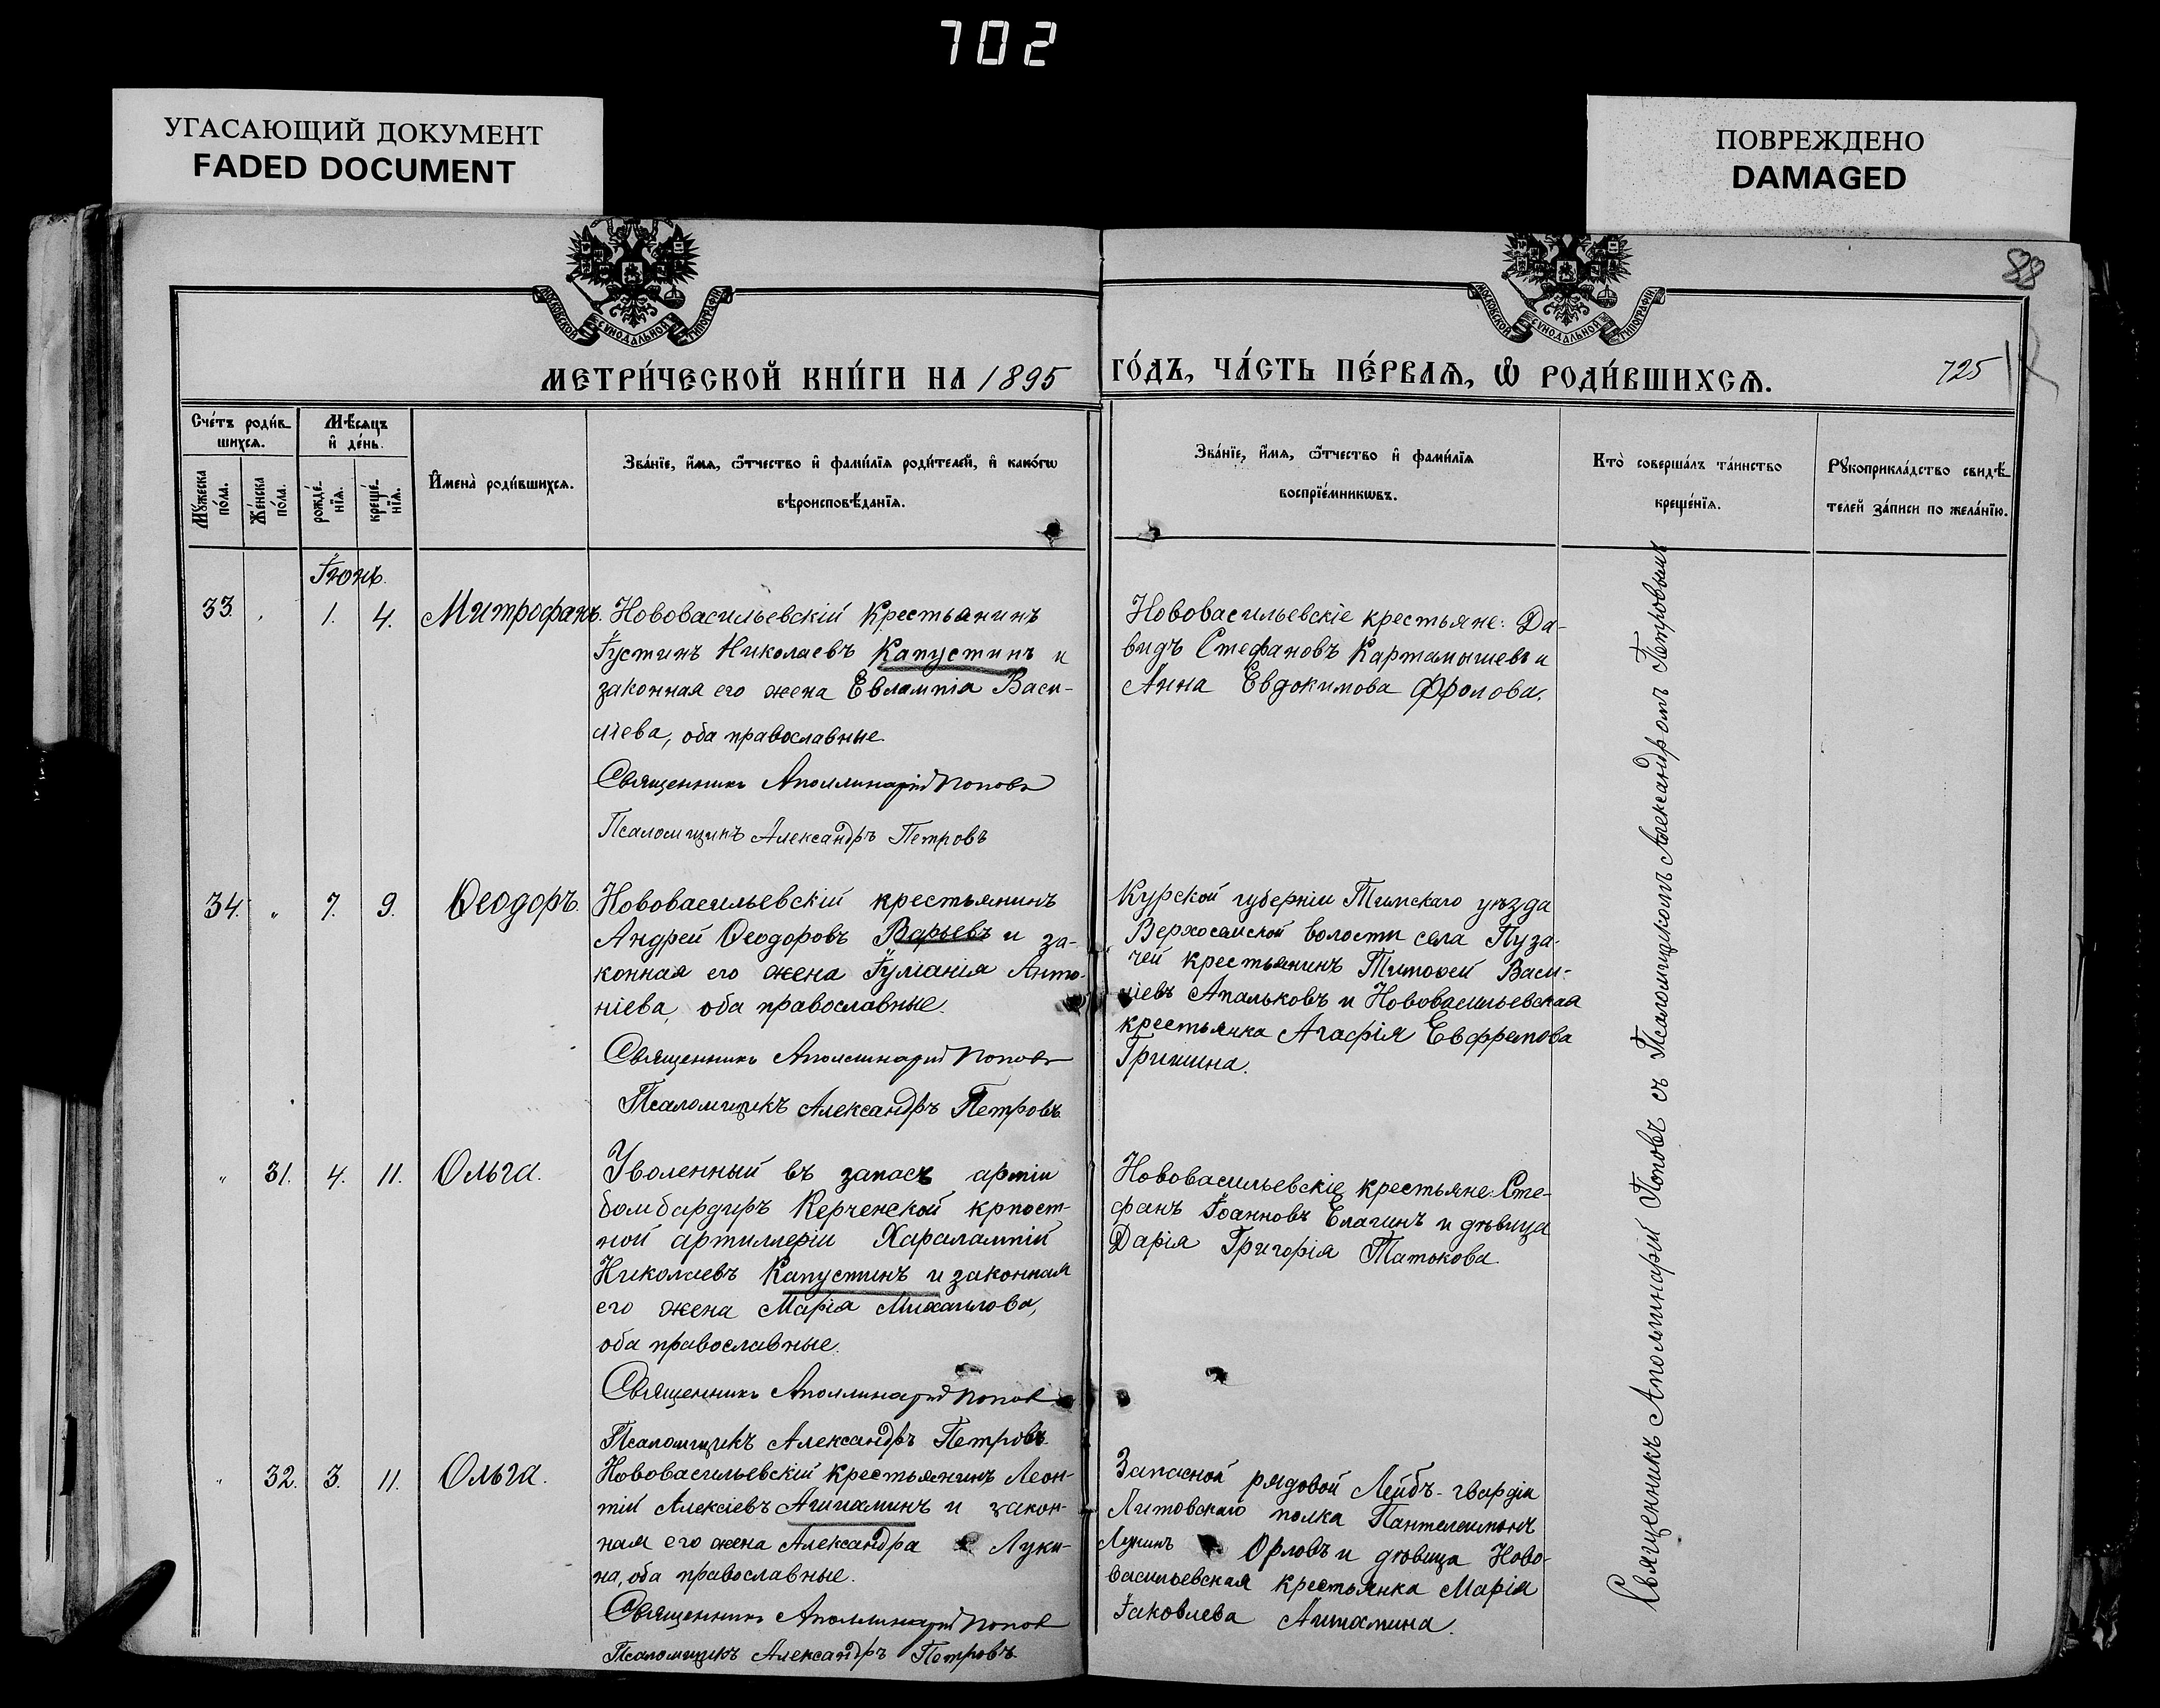 702
УГАСАЮЩИЙ ДОКУМЕНТ
FADED DOCUMENT
ПОВРЕЖДЕНО
DAMAGED
МОСКОВСКОЙ СУНОДАЛЬНОЙ ТИПОГРАФІИ
МОСКОВСКОЙ СУНОДАЛЬНОЙ ТИПОГРАФІИ
88
МЕТРИ́ЧЕСКОЙ КНИ́ГИ НА 1895
ГО́ДЪ, ЧА́СТЬ ПЕ́РВАѦ, Ѽ РОДИ́ВШИХСѦ.
725
Сче́тъ роди́в-
шихсѧ.
Мѣ́сяцъ
и҆ де́нь.
Мꙋ́жеска
по́ла.
Же́нска
по́ла.
рожде́-
нїѧ.
креще́-
нїѧ.
И҆мена̀ роди́вшихсѧ.
Зва́нїе, и҆́мѧ, ѻ҆́тчество и҆ фами́лїѧ роди́телей, и҆ како́гѡ
вѣроисповѣ́данїѧ.
Зва́нїе, и҆́мѧ, ѻ҆́тчество и҆ фами́лїѧ
воспрїе́мникѡвъ.
Кто̀ соверша́лъ та́инство
креще́нїѧ.
Рꙋкоприкла́дство свидѣ́-
телей за́писи по жела́нїю.
Іюнь.
33. 1. 4. Митрофанъ.
Нововасильевскій крестьянинъ
Іустинъ Николаевъ Капустинъ и
законная его жена Евлампія Васи-
лiева, оба православные.
Священникъ Аполлинарій Поповъ
Псаломщикъ Александръ Петровъ
Нововасильевскіе крестьяне: Да-
видъ Стефановъ Картамышевъ и
Анна Евдокимова Фролова.
34. „ 7. 9. Ѳеодоръ.
Нововасильевскій крестьянинъ
Андрей Ѳеодоровъ Варьевъ и за-
конная его жена Іуліанія Анто-
нiева, оба православные.
Священникъ Аполлинарій Поповъ
Псаломщикъ Александръ Петровъ.
Курской губерніи Тимскаго уѣзда
Верхосемской волости села Пуза-
чей крестьянинъ Тимоѳей Васи-
ліевъ Апальковъ и Нововасильевская
крестьянка Агафія
Гришина.
„ 31. 4. 11. Ольга.
Уволенный въ запасъ арміи
бомбардиръ Керченской крпост-
ной артиллеріи Харалампій
Николаевъ Капустинъ и законная
его жена Марія Михаилова,
оба православные.
Священникъ Аполлинарій Попов
Псаломщикъ Александръ Петровъ.
Нововасильевскіе крестьяне: Сте-
фанъ Іоанновъ Елагинъ и дѣвица
Дарія Григорія Татькова.
„ 32. 3. 11. Ольга.
Нововасильевскій крестьянинъ Леон-
тій Алексіевъ Ашихминъ и закон-
ная его жена Александра Луки-
на, оба православные.
Священникъ Аполлинарій Попов
Псаломщикъ Александръ Петровъ.
Запасной рядовой Лейбъ-гвардіи
Литовскаго полка Пантелеимонъ
Лукинъ Орловъ и дѣвица Ново-
васильевская крестьянка Марія
Іаковлева Ашихмина.
Священникъ Аполлинарій Поповъ съ Псаломщикомъ Александромъ Петровымъ